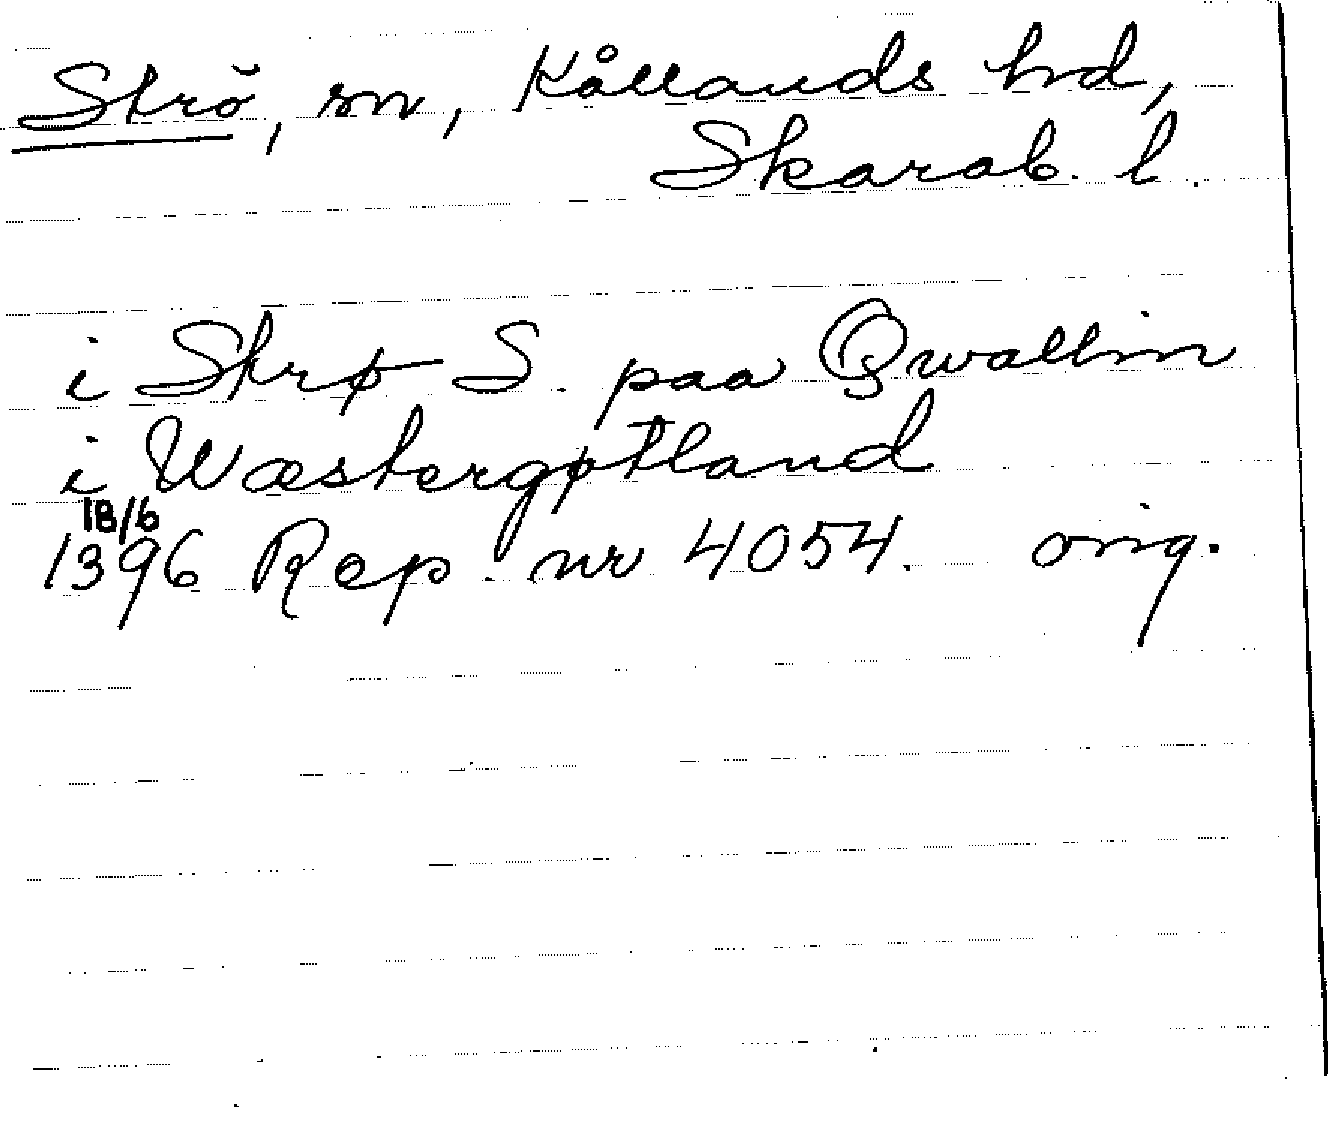 Strö, sn, Kållands hd,
Skarab. l.
i Strø S. paa Qwallin
i Wæstergøtland
18/6
1396 Rep. nr 4054. orig.